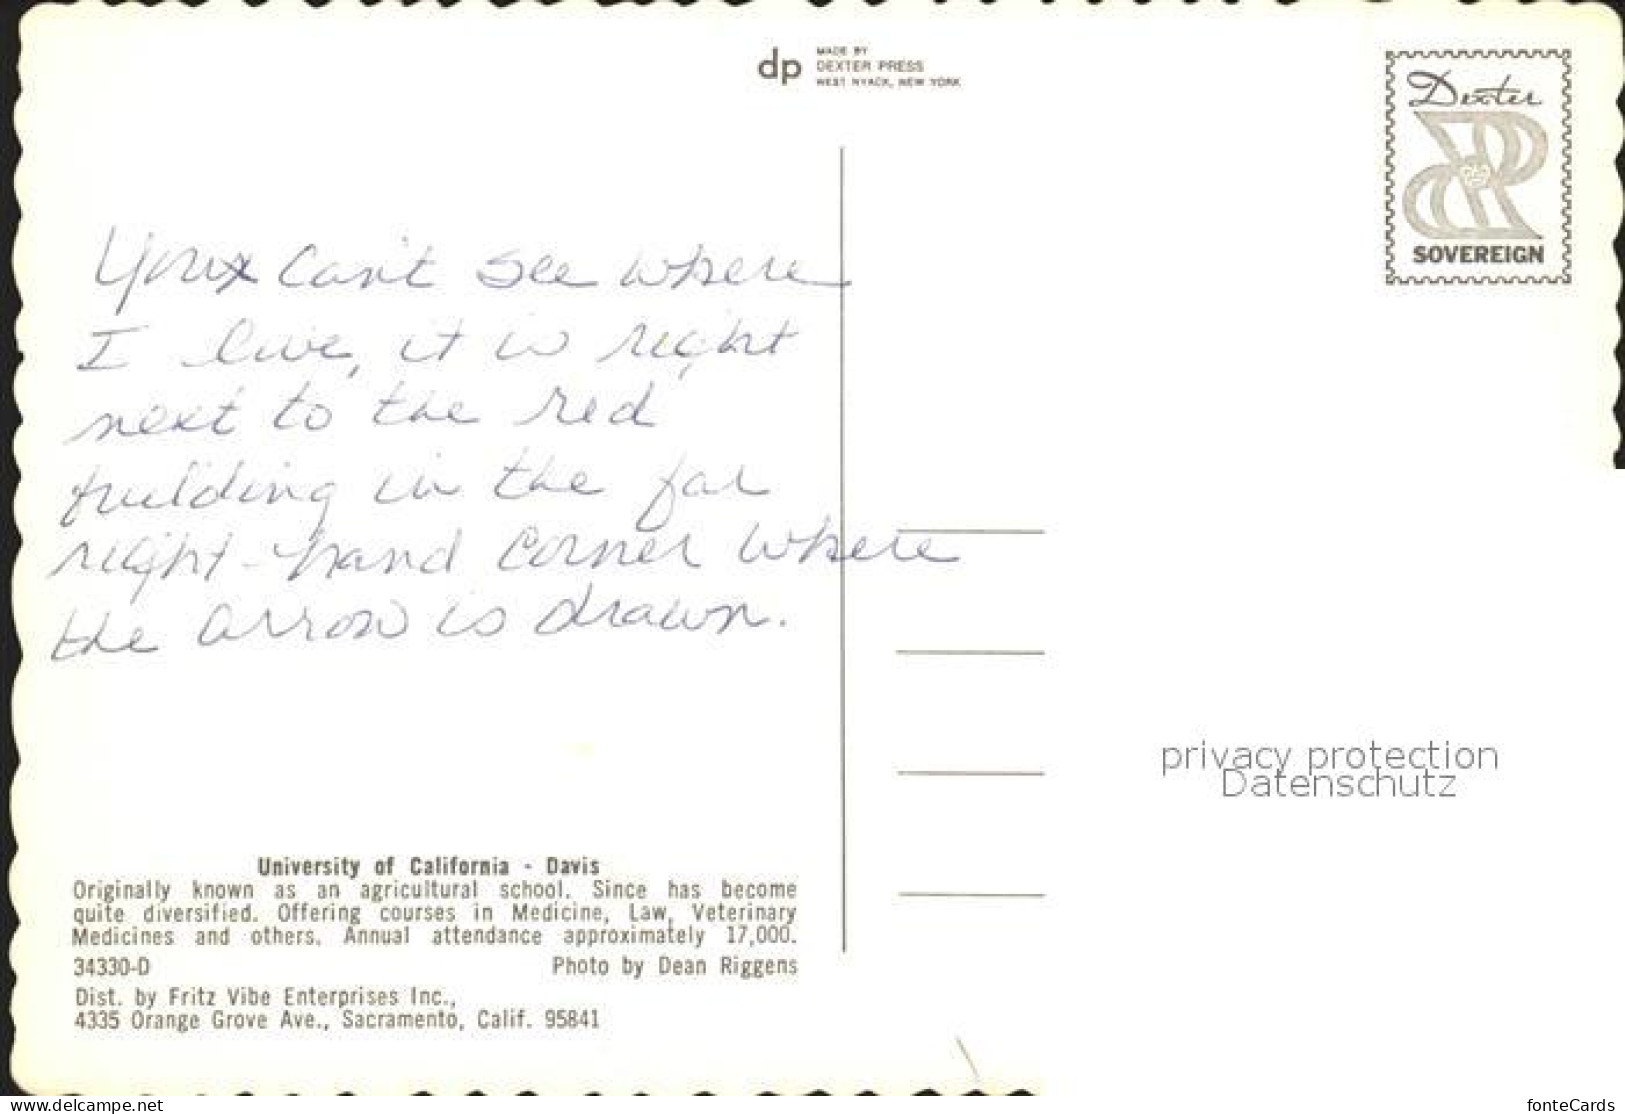 dp MADE BY
DEXTER PRESS
WEST NYACK, NEW YORK
Dexter
SOVEREIGN
You can't see where
I live, it is right
next to the red
building in the far
right-hand corner where
the arrow is drawn.
privacy protection
Datenschutz
University of California - Davis
Originally known as an agricultural school. Since has become
quite diversified. Offering courses in Medicine, Law, Veterinary
Medicines and others. Annual attendance approximately 17,000.
34330-D Photo by Dean Riggens
Dist. by Fritz Vibe Enterprises Inc.,
4335 Orange Grove Ave., Sacramento, Calif. 95841
www.delcampe.net
fonteCards